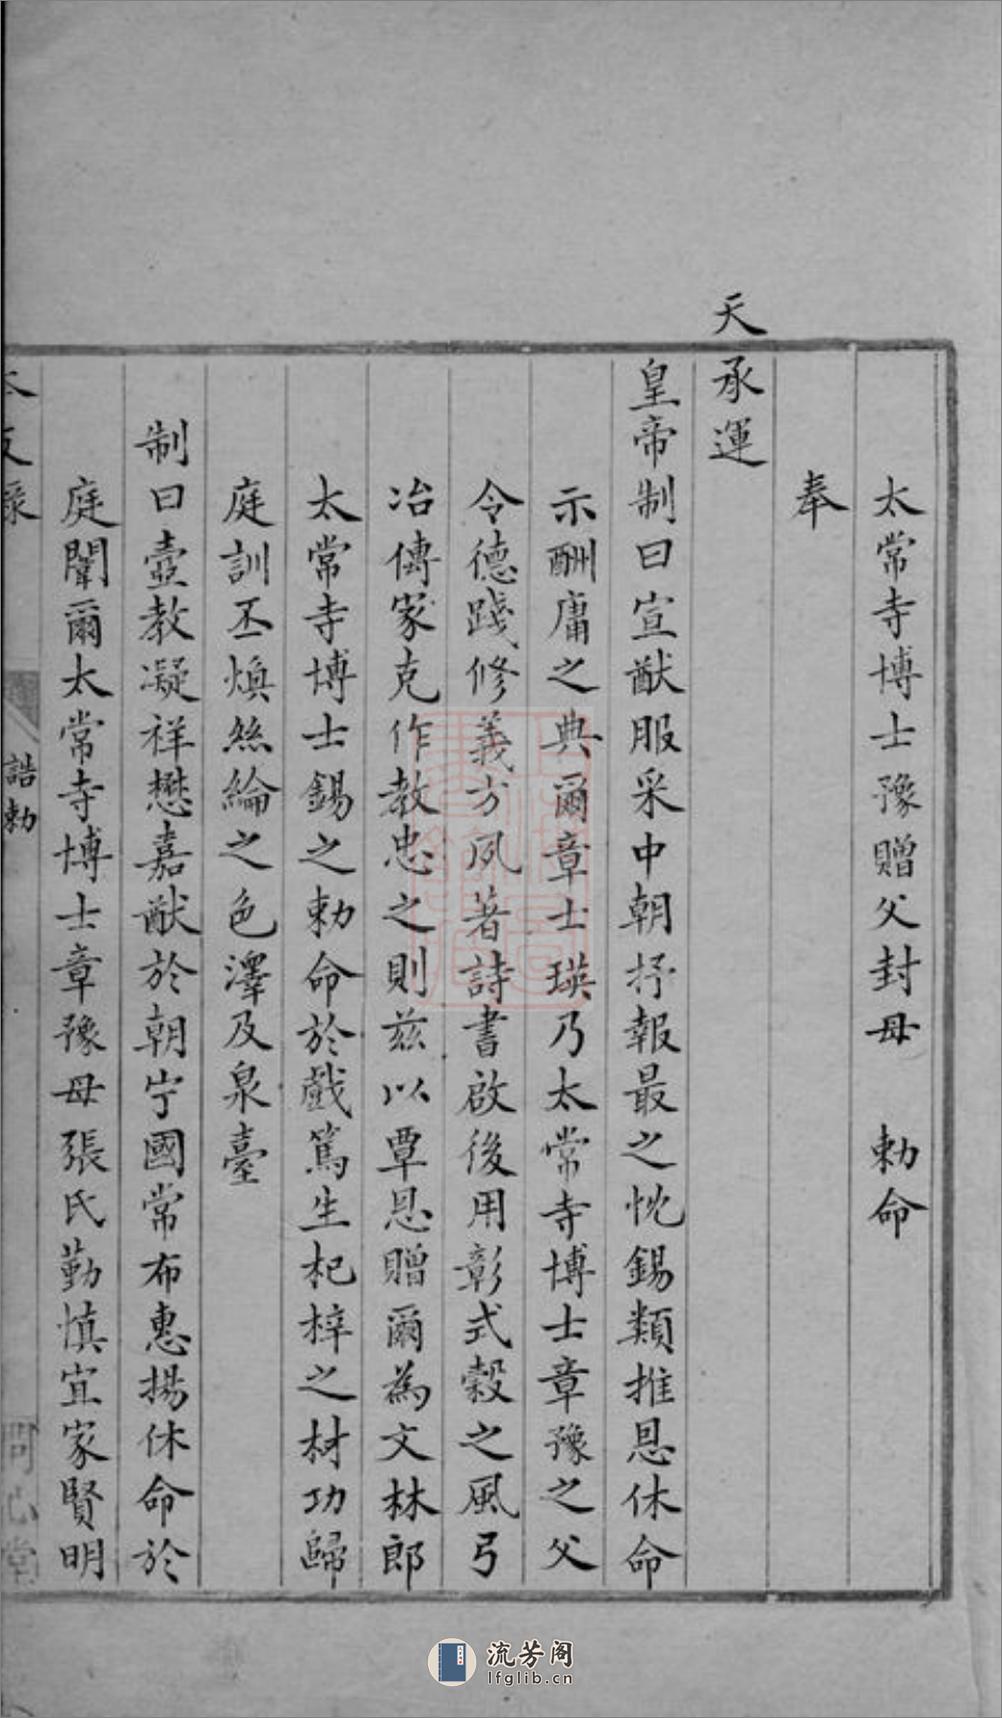 太常寺博士豫贈父封母　勅命
奉
天承運
皇帝制曰宣猷服采中朝抒報最之忱錫類推恩休命
示酬庸之典爾章士瑛乃太常寺博士章豫之父
令德踐修義方夙著詩書啟後用彰式穀之風弓
冶傳家克作教忠之則茲以覃恩贈爾為文林郎
太常寺博士錫之勅命於戲篤生杞梓之材功歸
庭訓丕煥絲綸之色澤及泉臺
制曰壼教凝祥懋嘉猷於朝宁國常布惠揚休命於
庭闈爾太常寺博士章豫母張氏勤慎宜家賢明
誥勅
問心堂
流芳阁
lfglib.cn